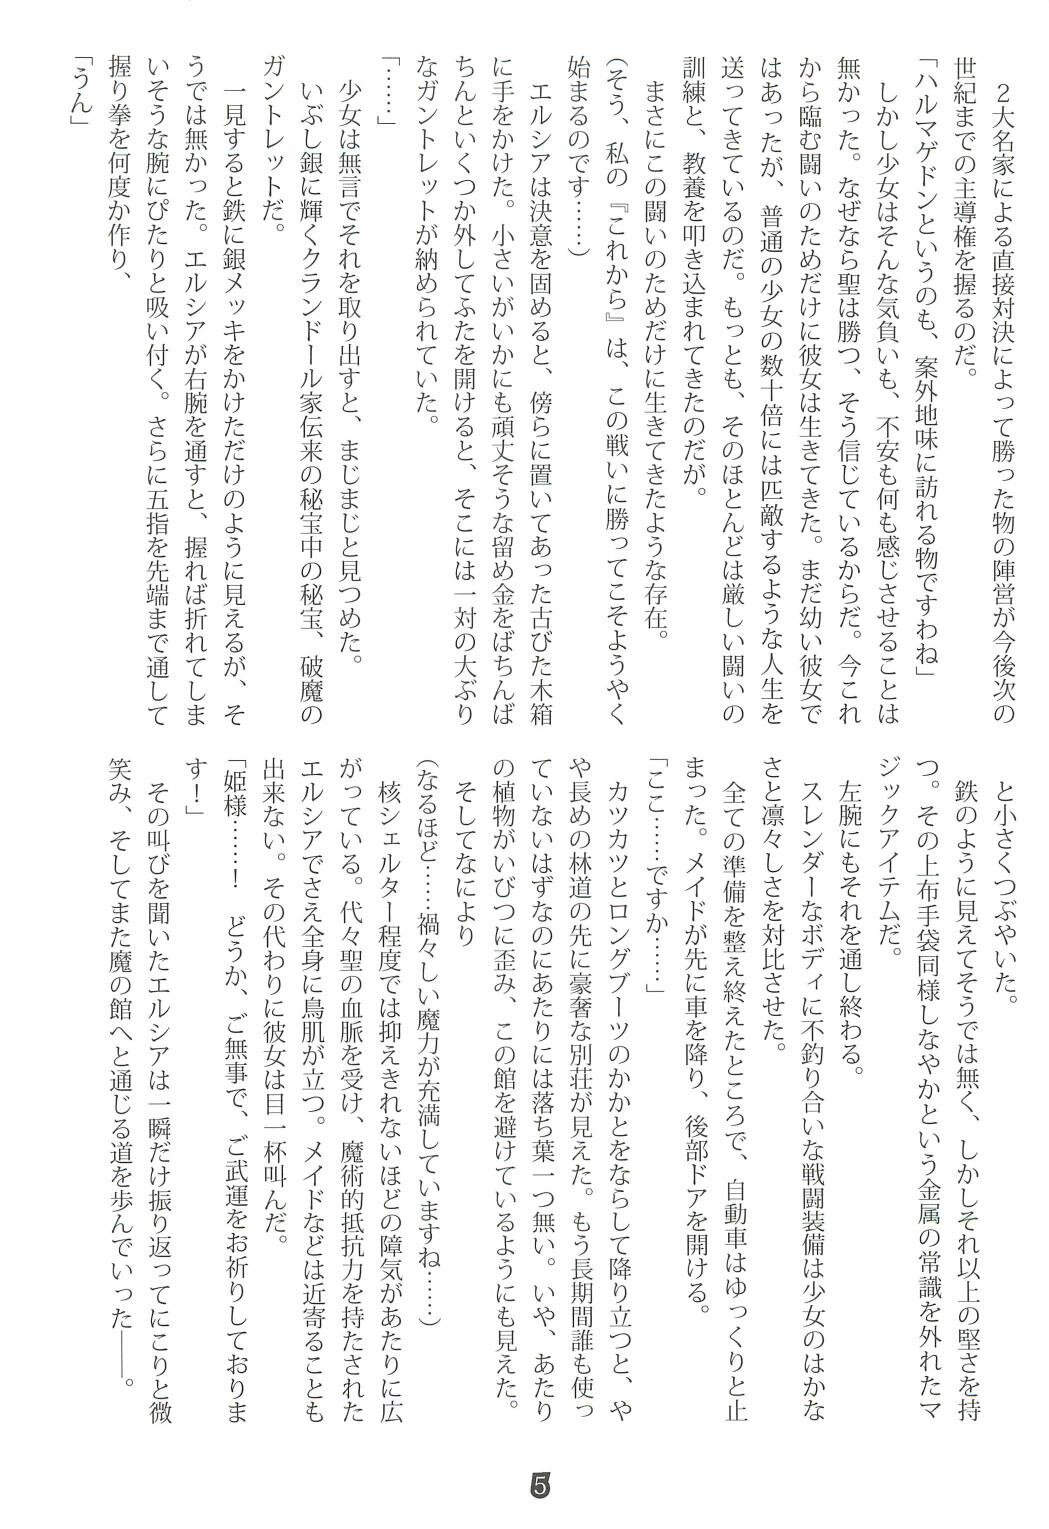 ２大名家による直接対決によって勝った物の陣営が今後次の
世紀までの主導権を握るのだ。
「ハルマゲドンというのも、案外地味に訪れる物ですわね」
　しかし少女はそんな気負いも、不安も何も感じさせることは
無かった。なぜなら聖は勝つ、そう信じているからだ。今これ
から臨む闘いのためだけに彼女は生きてきた。まだ幼い彼女で
はあったが、普通の少女の数十倍には匹敵するような人生を
送ってきているのだ。もっとも、そのほとんどは厳しい闘いの
訓練と、教養を叩き込まれてきたのだが。
　まさにこの闘いのためだけに生きてきたような存在。
（そう、私の『これから』は、この戦いに勝ってこそようやく
始まるのです……）
　エルシアは決意を固めると、傍らに置いてあった古びた木箱
に手をかけた。小さいがいかにも頑丈そうな留め金をばちんば
ちんといくつか外してふたを開けると、そこには一対の大ぶり
なガントレットが納められていた。
「……」
　少女は無言でそれを取り出すと、まじまじと見つめた。
　いぶし銀に輝くクランドール家伝来の秘宝中の秘宝、破魔の
ガントレットだ。
　一見すると鉄に銀メッキをかけただけのように見えるが、そ
うでは無かった。エルシアが右腕を通すと、握れば折れてしま
いそうな腕にぴたりと吸い付く。さらに五指を先端まで通して
握り拳を何度か作り、
「うん」
　と小さくつぶやいた。
　鉄のように見えてそうでは無く、しかしそれ以上の堅さを持
つ。その上布手袋同様しなやかという金属の常識を外れたマ
ジックアイテムだ。
　左腕にもそれを通し終わる。
　スレンダーなボディに不釣り合いな戦闘装備は少女のはかな
さと凛々しさを対比させた。
　全ての準備を整え終えたところで、自動車はゆっくりと止
まった。メイドが先に車を降り、後部ドアを開ける。
「ここ……ですか……」
　カツカツとロングブーツのかかとをならして降り立つと、や
や長めの林道の先に豪奢な別荘が見えた。もう長期間誰も使っ
ていないはずなのにあたりには落ち葉一つ無い。いや、あたり
の植物がいびつに歪み、この館を避けているようにも見えた。
　そしてなにより
（なるほど……禍々しい魔力が充満していますね……）
　核シェルター程度では抑えきれないほどの障気があたりに広
がっている。代々聖の血脈を受け、魔術的抵抗力を持たされた
エルシアでさえ全身に鳥肌が立つ。メイドなどは近寄ることも
出来ない。その代わりに彼女は目一杯叫んだ。
「姫様……！　どうか、ご無事で、ご武運をお祈りしておりま
す！」
　その叫びを聞いたエルシアは一瞬だけ振り返ってにこりと微
笑み、そしてまた魔の館へと通じる道を歩んでいった――。
5